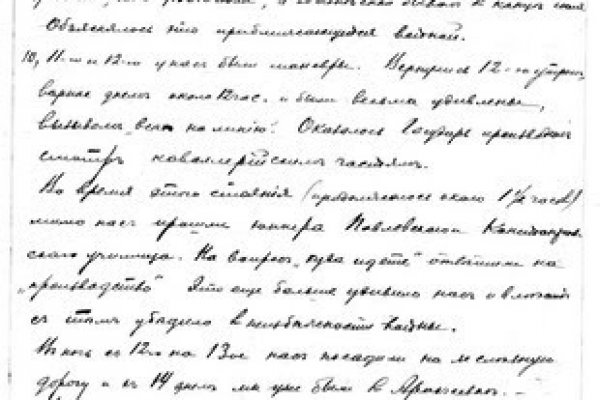 Объяснялось это приближающейся войной.
10, 11-го и 12-го у нас были маневры. Вернулись 12-го утром,
вернее днем около 12 час. и были весьма удивлены,
вызовом "всех на линию". Оказалось Государь производил
смотр кавалерийским частям.
Во время этого стояния (продолжалось около 1½ часов)
мимо нас прошли юнкера Павловского
училища. На вопрос "куда идете" отвечали на
"производство" Это еще больше удивило нас и вместе
с тем убедило в неизбежности войны.
В ночь с 12го на 13ое нас посадили на железную
дорогу и 14 днем мы уже были в